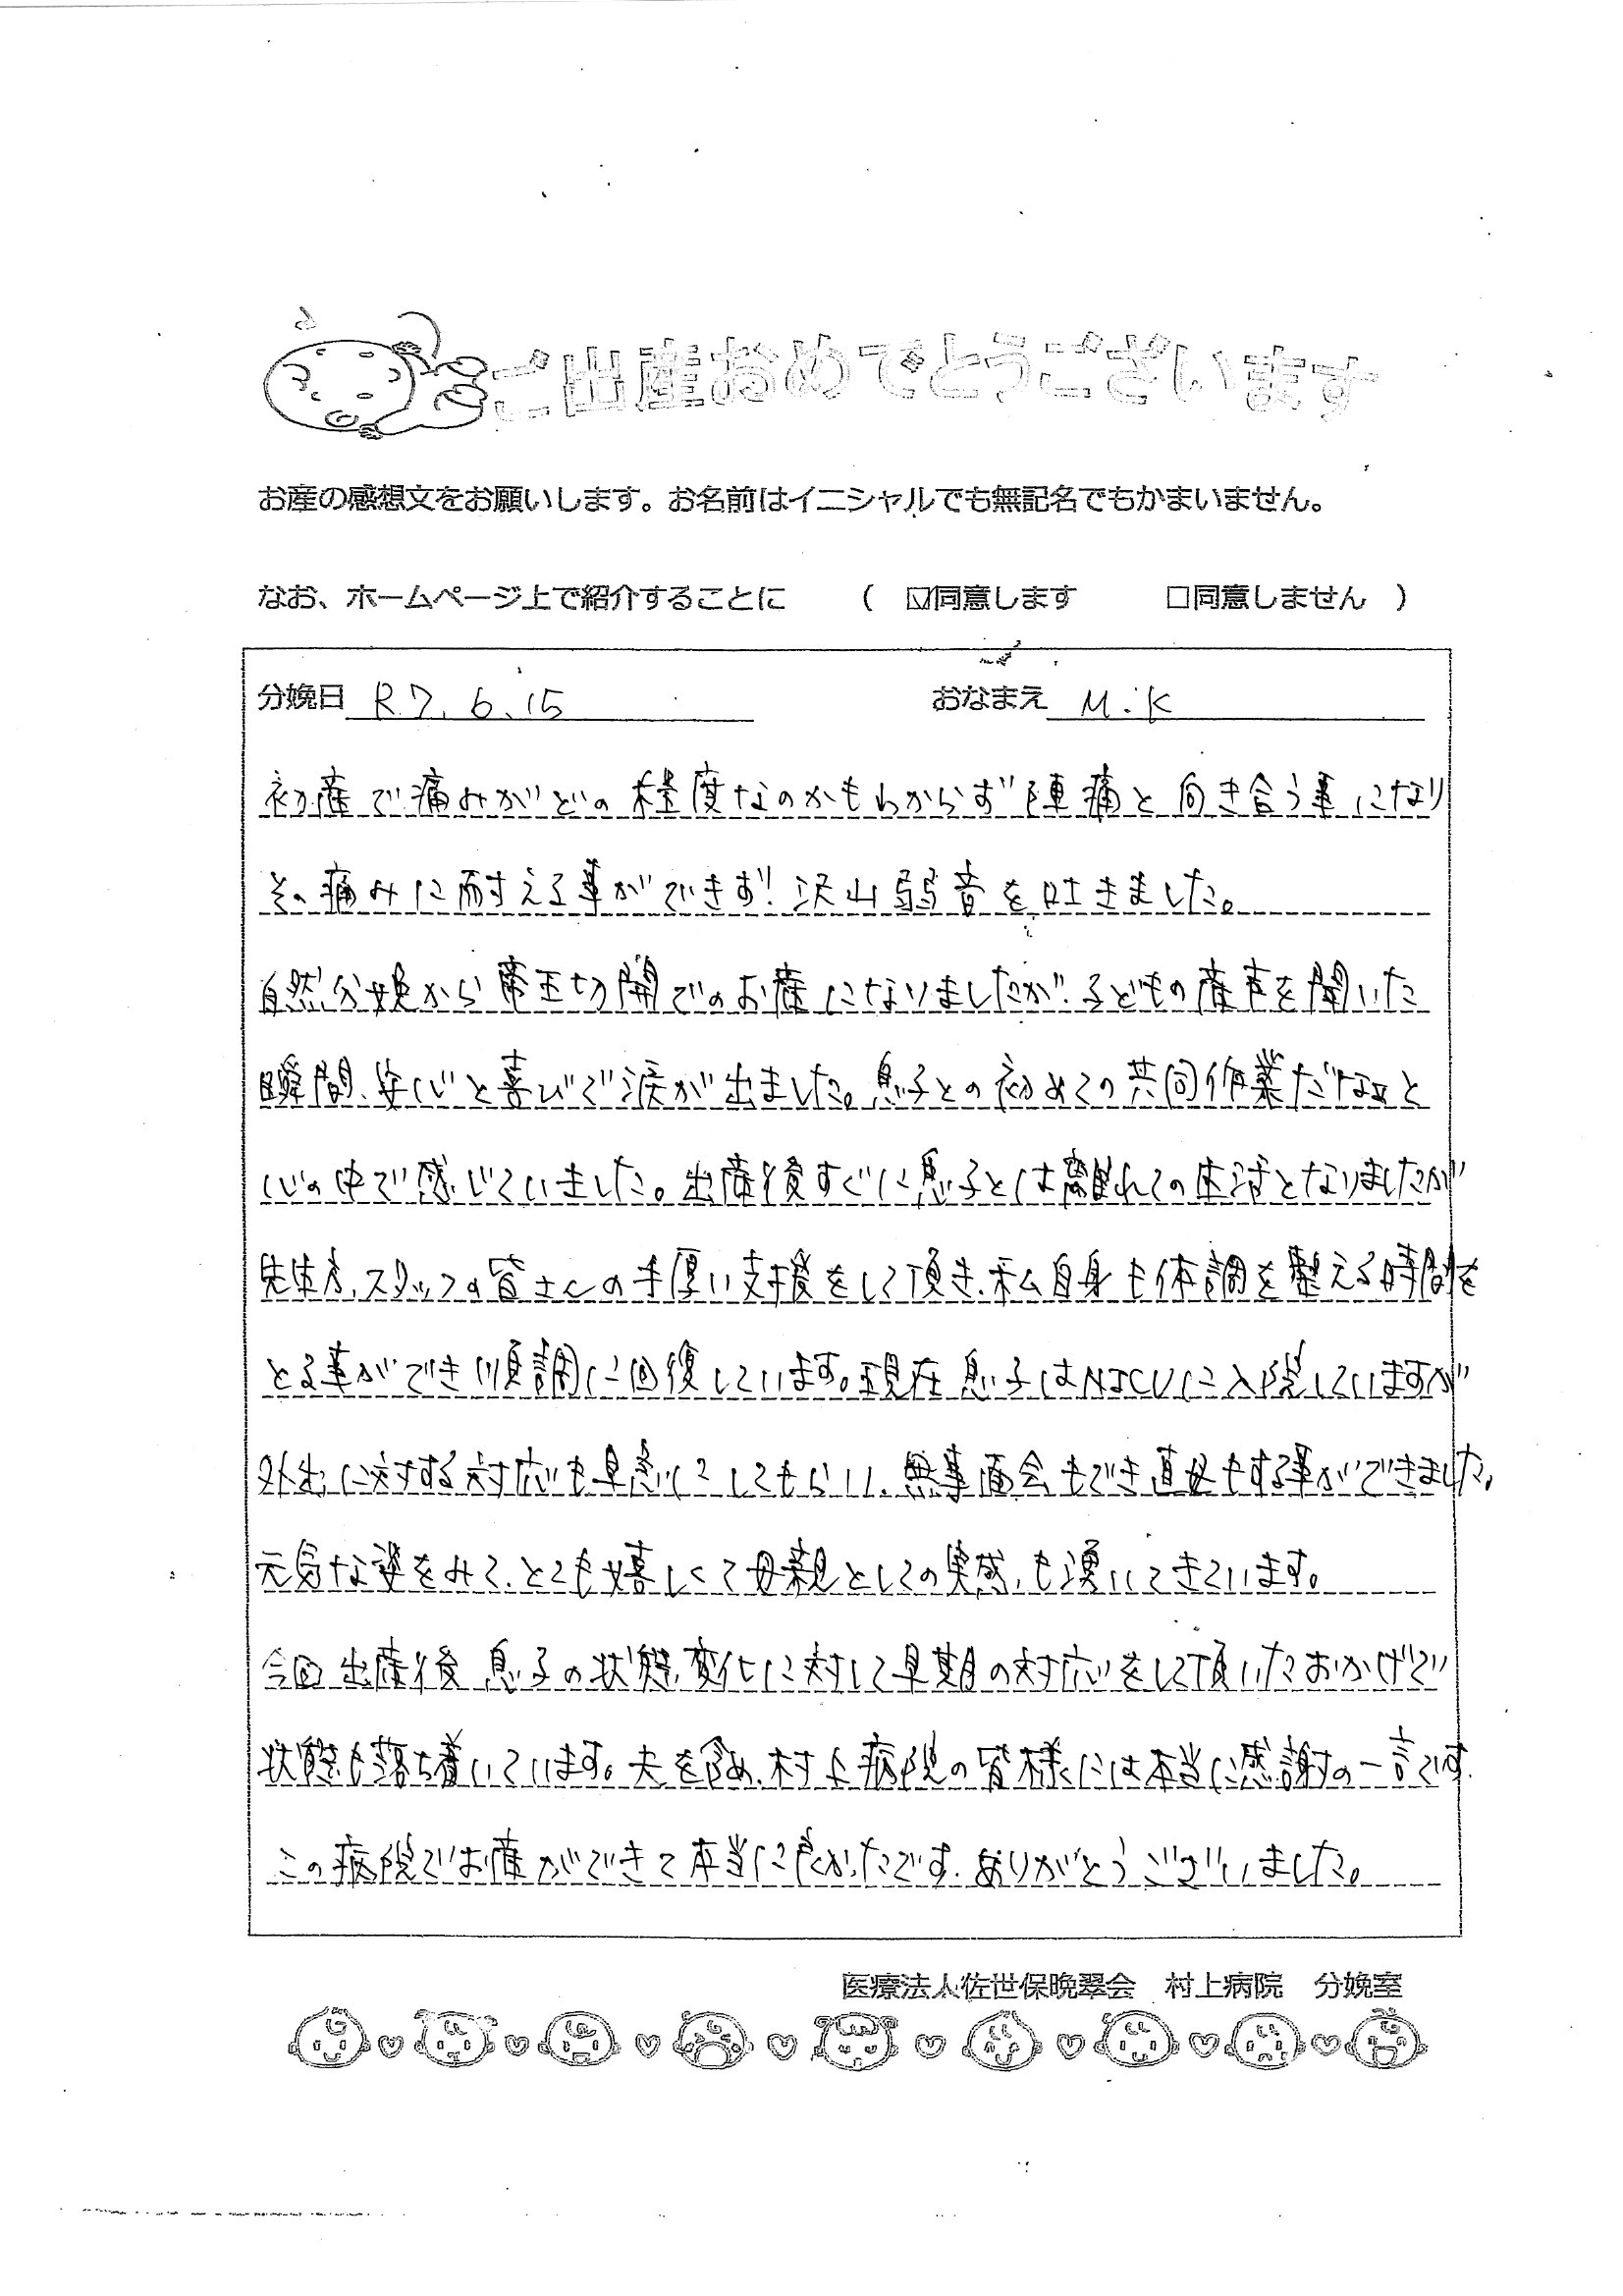 ご出産おめでとうございます
お産の感想文をお願いします。お名前はイニシャルでも無記名でもかまいません。
なお、ホームページ上で紹介することに ( ☑同意します □同意しません )
分娩日 R7.6.15 おなまえ M.K
初産で痛みがどの程度なのかもわからず陣痛と向き合う事になり
その痛みに耐える事ができず!沢山弱音を吐きました。
自然分娩から帝王切開でのお産になりましたが、子どもの産声を聞いた
瞬間、安心と喜びで涙が出ました。息子との初めての共同作業だなぁと
心の中で感じていました。出産後すぐに息子とは離れての生活となりましたが
先生方、スタッフの皆さんの手厚い支援をして頂き、私自身も体調を整える時間を
とる事ができ順調に回復しています。現在息子はNICUに入院していますが
外出に対する対応も早急にしてもらい、無事面会もでき直母もする事ができました。
元気な姿をみて、とても嬉しくて母親としての実感も湧いてきています。
今回出産後息子の状態変化に対して早期の対応をして頂いたおかげで
状態も落ち着いています。夫を含め、村上病院の皆様には本当に感謝の一言です。
この病院でお産ができて本当に良かったです。ありがとうございました。
医療法人佐世保晩翠会 村上病院 分娩室